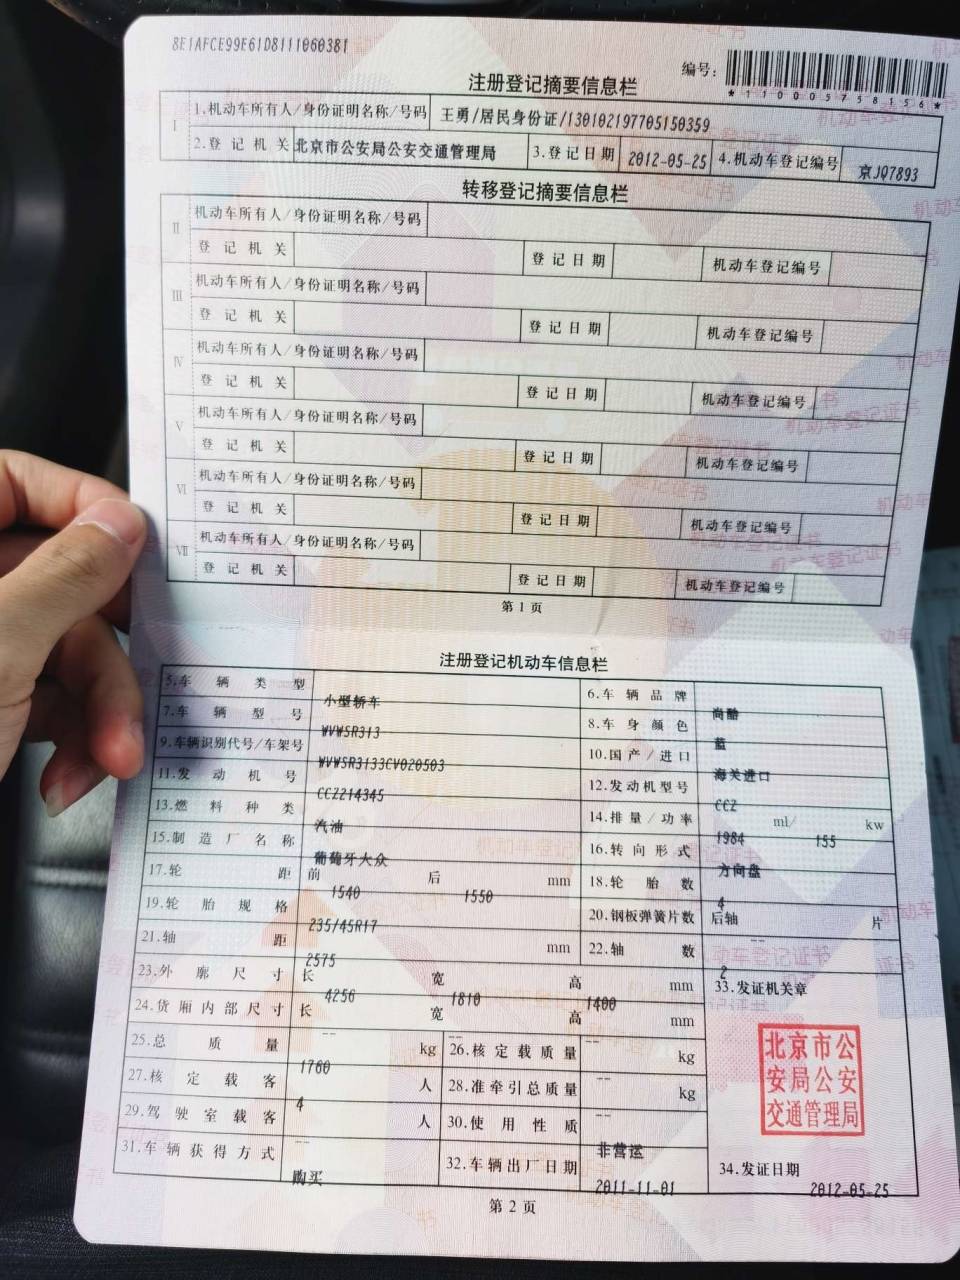 8E1AFCE99E61D8111060381
编号:
*110005758156*
注册登记摘要信息栏
I 1.机动车所有人/身份证明名称/号码 王勇/居民身份证/130102197705150359
2.登记机关 北京市公安局公安交通管理局 3.登记日期 2012-05-25 4.机动车登记编号 京JQ7893
转移登记摘要信息栏
II 机动车所有人/身份证明名称/号码
登记机关 登记日期 机动车登记编号
III 机动车所有人/身份证明名称/号码
登记机关 登记日期 机动车登记编号
IV 机动车所有人/身份证明名称/号码
登记机关 登记日期 机动车登记编号
V 机动车所有人/身份证明名称/号码
登记机关 登记日期 机动车登记编号
VI 机动车所有人/身份证明名称/号码
登记机关 登记日期 机动车登记编号
VII 机动车所有人/身份证明名称/号码
登记机关 登记日期 机动车登记编号
第1页
注册登记机动车信息栏
5.车辆类型 小型轿车 6.车辆品牌 尚酷
7.车辆型号 WVWSR313 8.车身颜色 蓝
9.车辆识别代号/车架号 WVWSR3133CV020503 10.国产/进口 海关进口
11.发动机号 CCZ214345 12.发动机型号 CCZ
13.燃料种类 汽油 14.排量/功率 1984 ml/ 155 kw
15.制造厂名称 葡萄牙大众 16.转向形式 方向盘
17.轮距 前 1540 后 1550 mm 18.轮胎数 4
19.轮胎规格 235/45R17 20.钢板弹簧片数 后轴 -- 片
21.轴距 2575 mm 22.轴数 2
23.外廓尺寸 长 4256 宽 1810 高 1400 mm 33.发证机关章
24.货厢内部尺寸 长 -- 宽 -- 高 -- mm
25.总质量 1760 kg 26.核定载质量 -- kg
27.核定载客 4 人 28.准牵引总质量 -- kg
29.驾驶室载客 -- 人 30.使用性质 非营运
31.车辆获得方式 购买 32.车辆出厂日期 2011-11-01 34.发证日期 2012-05-25
北京市公
安局公安
交通管理局
第2页